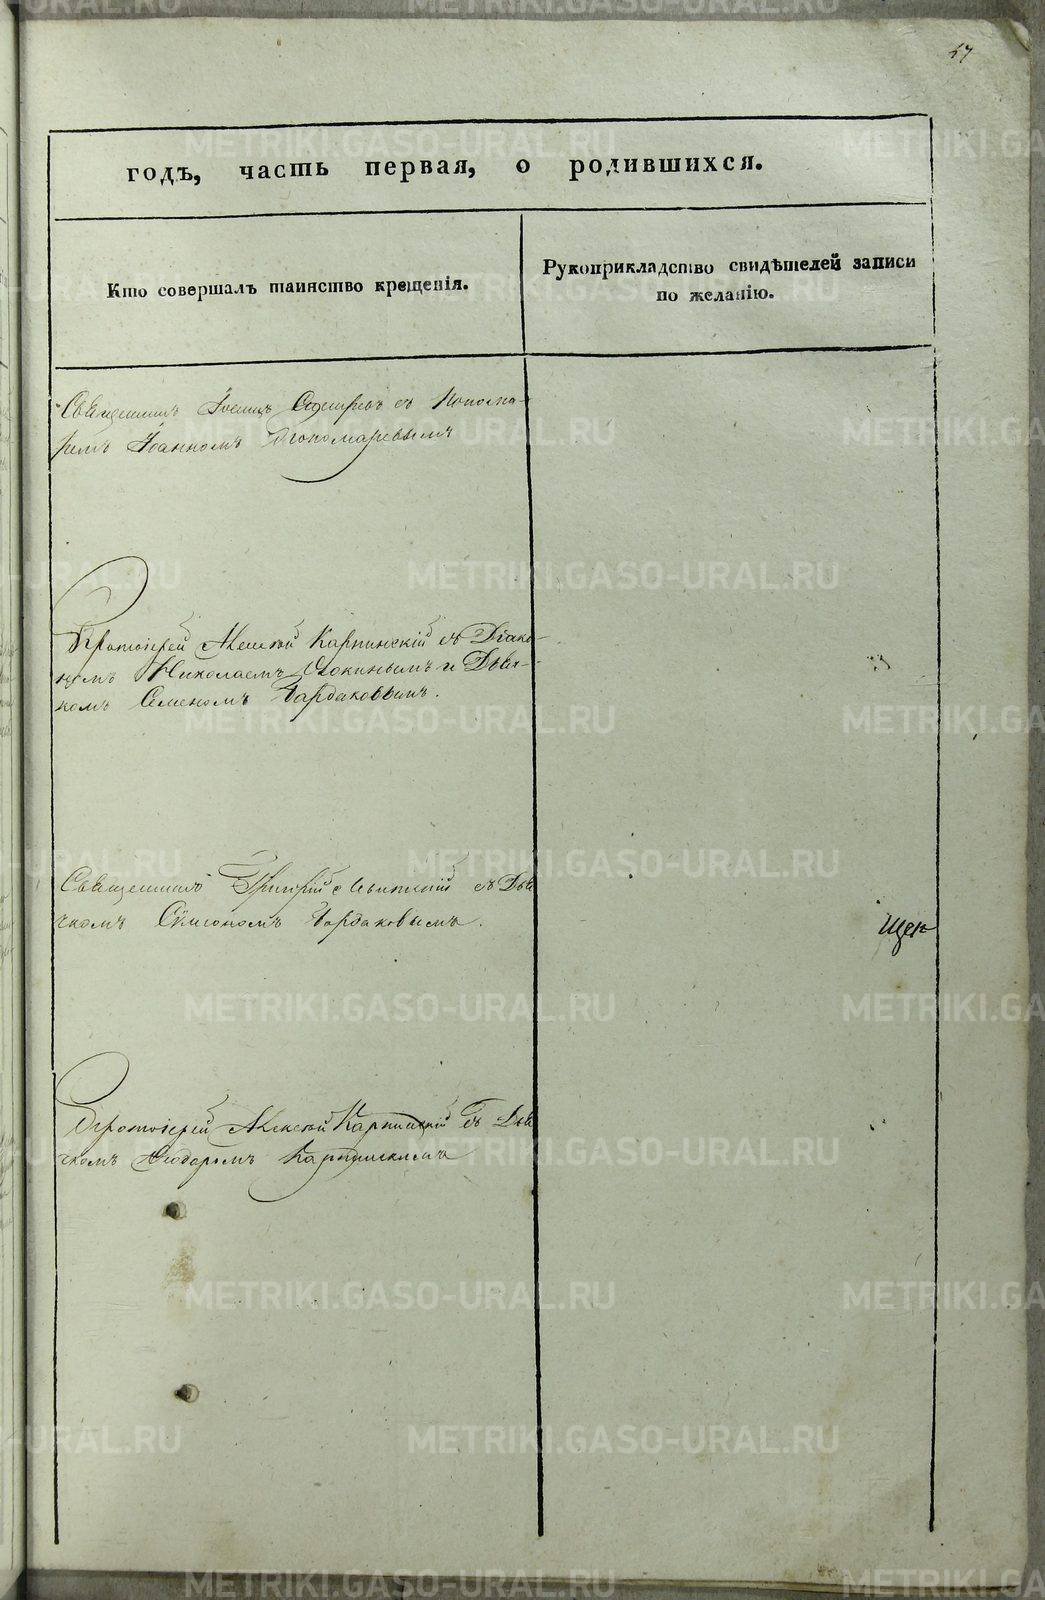 57
годъ, часть первая, о родившихся.
Кто совершалъ таинство крещенія.
Рукоприкладство свидѣтелей записи
по желанію.
Священникъ с Понома-
ремъ Іоанномъ Пономаревымъ
Протоіерей Алексѣй Карпинскій съ Діако-
номъ Николаемъ и Дьяч-
комъ Семеномъ Бардаковымъ.
Священникъ Григорій съ Дья
чкомъ Сѵмеономъ Бардаковымъ.
Щеп
Протоіерей Алексѣй Карпинскій съ Дья
чкомъ Ѳеодоромъ Карпинскимъ
METRIKI.GASO-URAL.RU